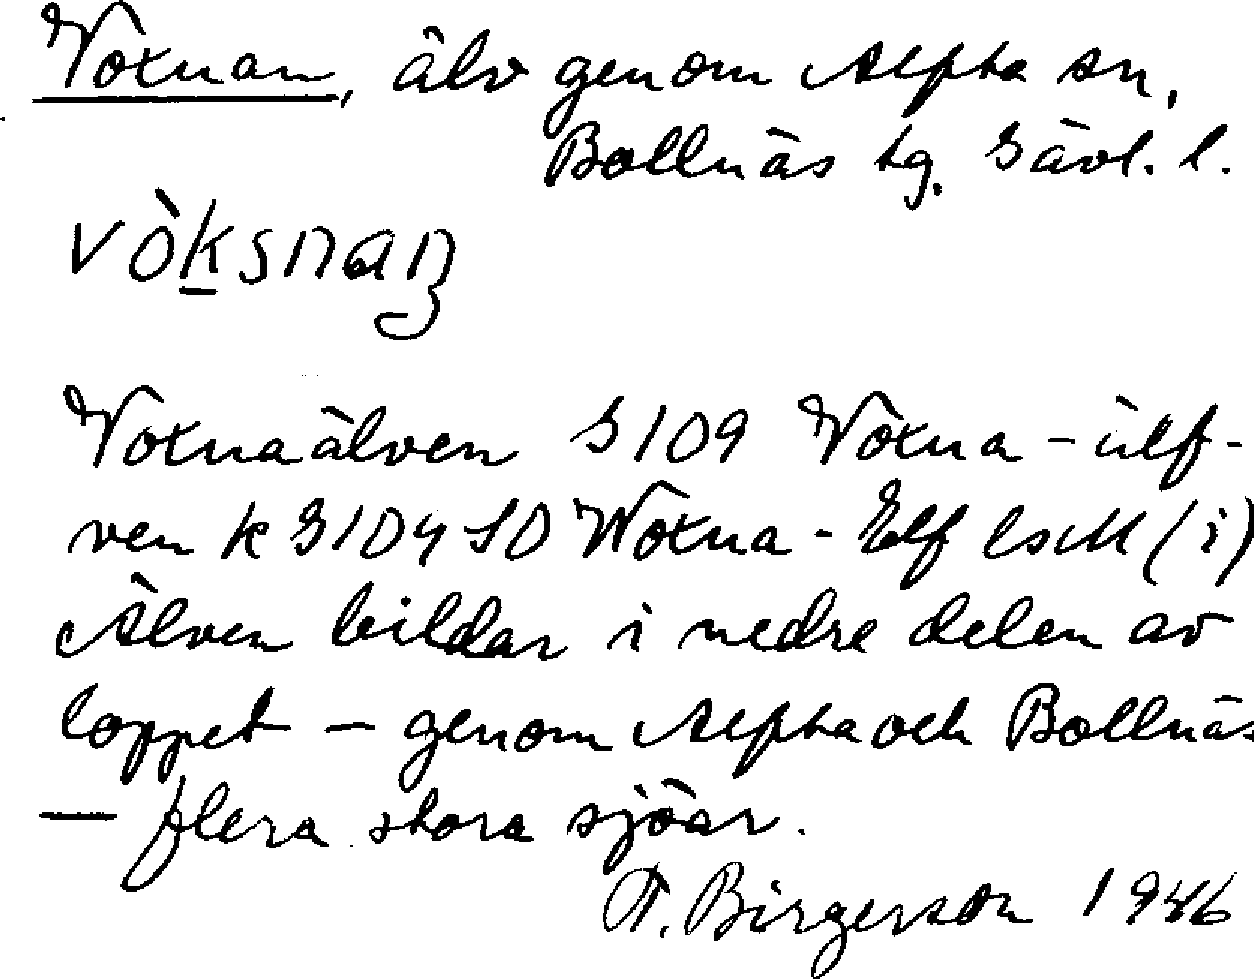 Voxnan, älv genom Alfta sn,
Bollnäs tg. Gävl. l.
vòksnaŋ
Voxnaälven G 109 Voxna-elf-
ven k G 104 SO Woxna-Elf LsM (i)
Älven bildar i nedre delen av
loppet — genom Alfta och Bollnäs
— flera stora sjöar.
T. Birgerson 1946